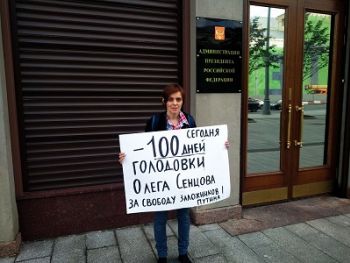 АДМИНИСТРАЦИЯ
ПРЕЗИДЕНТА
РОССИЙСКОЙ
ФЕДЕРАЦИИ
СЕГОДНЯ
– 100 ДНЕЙ
ГОЛОДОВКИ
ОЛЕГА СЕНЦОВА
ЗА СВОБОДУ ЗАЛОЖНИКОВ !
ПУТИНА